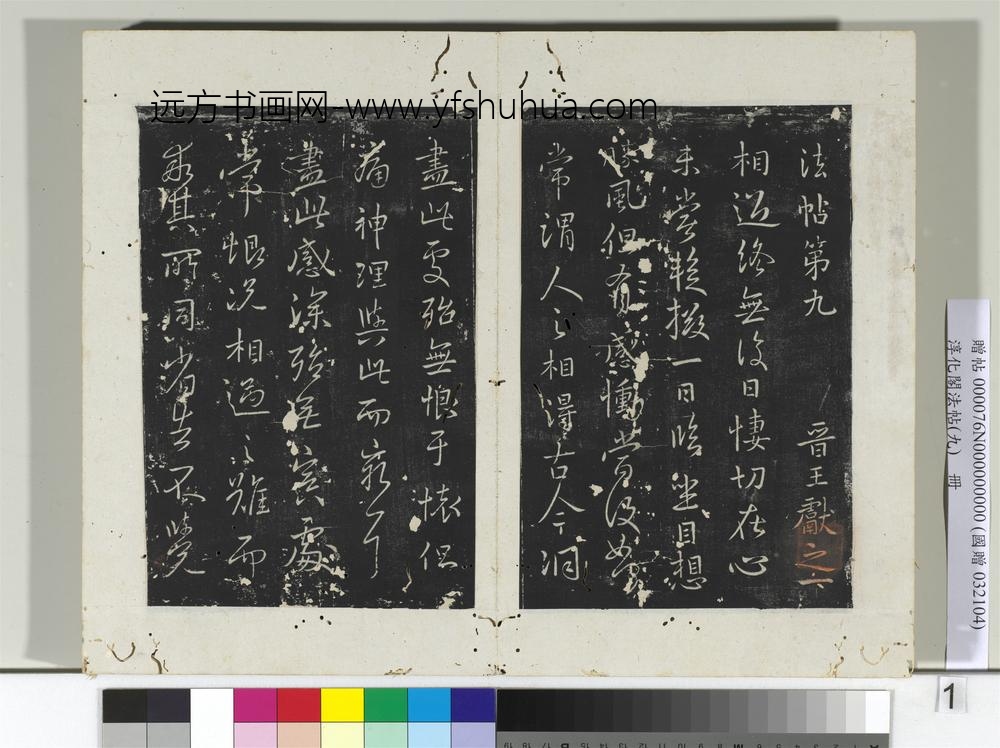 远方书画网-www.yfshuhua.com
法帖第九 晉王獻之六
相過終無復日悽切在心
未嘗暫掇一日臨坐目想
勝風但有感慟當復如何
常謂人之相得古今洞
盡此處殆無恨于懷但
痛神理與此而窮耳
盡此感深殆無冥處
常恨況相遇之難而
乖其所同省告不覺
贈帖 000076N000000000 (國贈 032104)
淳化閣法帖(九) 冊
1